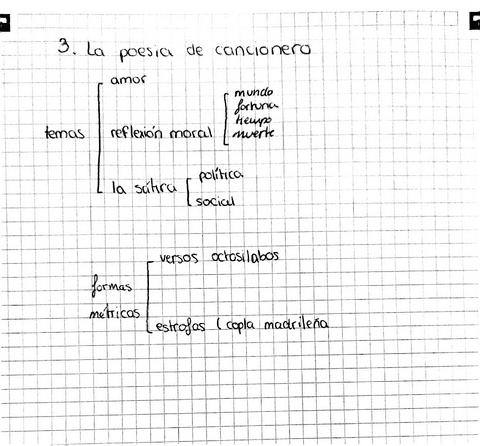 3. La poesia de cancionero
amor
mundo
fortuna
tiempo
temas
reflexión moral
muerte
la sátira
política
social
versos octosilabos
formas
métricas
estrofas (copla madrileña